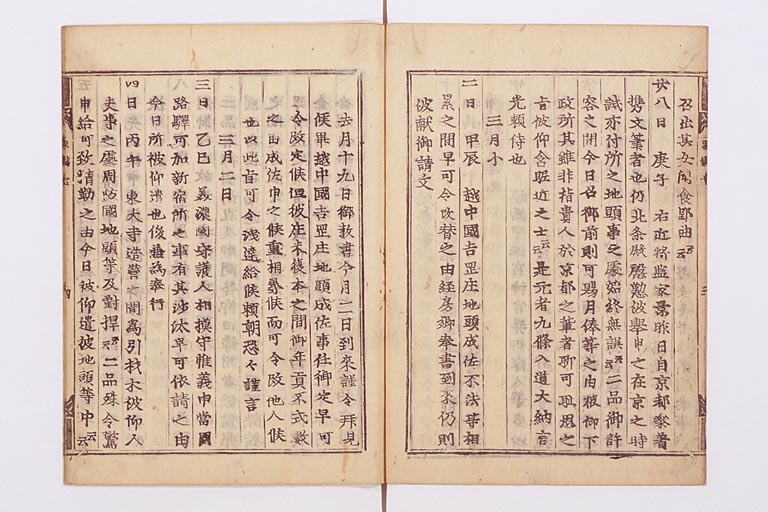 召出其女房食邸曲云云
廿八日 庚子 右近将監家景昨日自京都参著
携文筆者也仍北条殿慇懃被挙申之在京之時
試示付所之地頭事之處始終無誤云云二品御許
容之間今日召御前則可賜月俸等之由被仰下
政所其雖非指貴人於京都之筆者聊可恥思之
旨被仰含昵近之士云云是死者九條入道大納言
光頼侍也
三月小
二日 甲辰 越中國吉罡庄地頭成佐不法等相
累之間早可令改替之由経房卿奉書到来仍則
被献御請文
去月十九日御教書今月二日到来謹令拜見
候畢越中國吉罡庄地頭成佐事任御定早可
令改定候但彼庄未復本之間御年貢不式數
之由成佐申之候重相尋候而可令改他人候
也以此旨可令洩達給候頼朝恐々謹言
三月二日
三日 乙巳 義濃國守護人相摸守惟義申當國
路驛可加新宿所之事有其沙汰早可依請之由
今日所被仰遣也俊兼為奉行
四日 丙午 東大寺造營之間為引材木被仰人
夫事之處周防國地頭等及對捍云云二品殊令驚
申給可致精勤之由今日被仰遣彼地頭等中云云